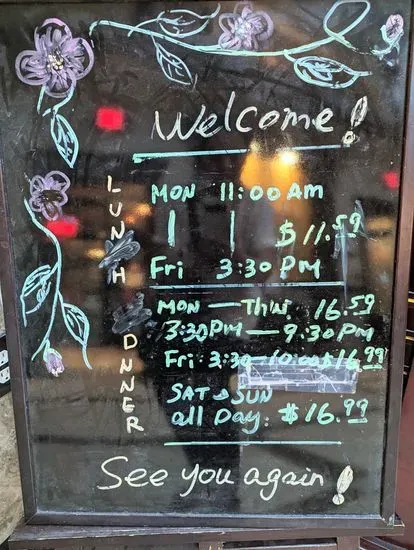 Welcome!
LUNH
MON 11:00 Am
$11.59
Fri 3:30 PM
DNNER
MON — THur 16.59
3:30PM — 9:30PM
Fri: 3:30 — 10:00 $16.99
SAT & SUN
all Day: $16.99
See you again!